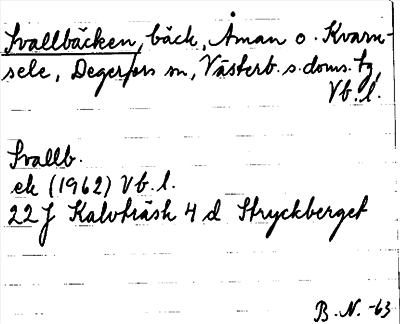 Svallbäcken, bäck, Åman o. Kvarn-
sele, Degerfors sn, Västerb. s. doms. tg,
Vb. l.
Svallb.
ek (1962) Vb. l.
22 J Kalvträsk 4 d Stryckberget
B. N. -63